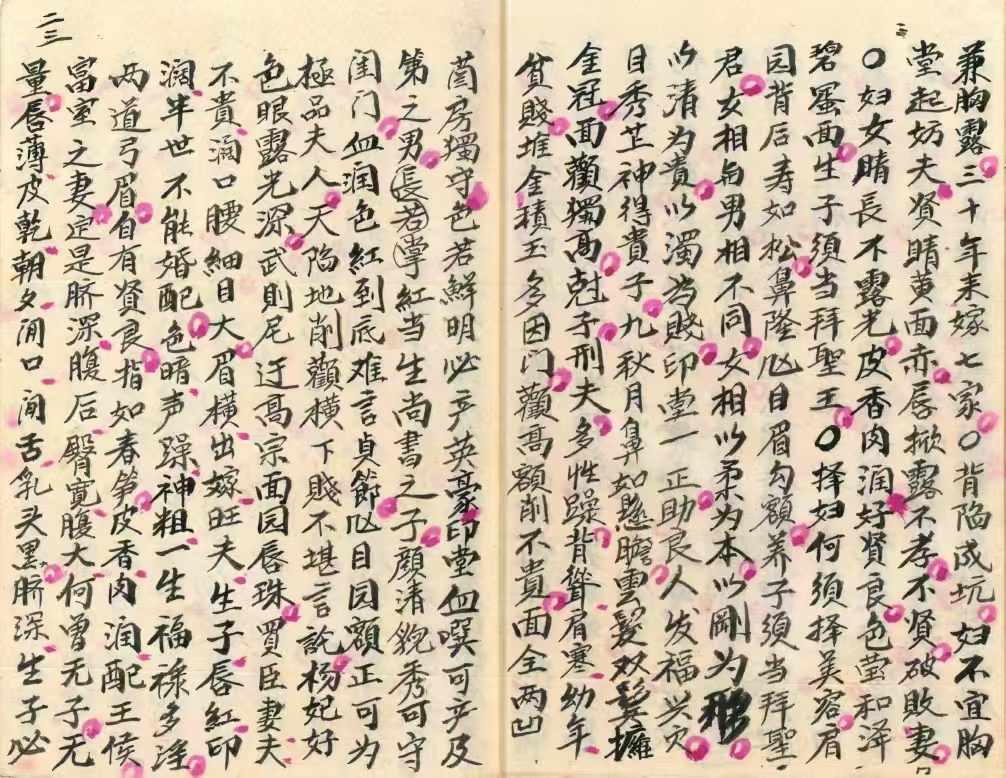 兼胸露三十年来嫁七家〇背陷成坑妇不宜胸
堂起妨夫贤睛黄面赤唇掀露不孝不贤破败妻
〇妇女睛長不露光皮香肉润好贤良色莹和泽
碧面生子須当拜聖王〇择妇何須择美容眉
园背后寿如松鼻隆凤目眉勾额养子須当拜聖
君女相与男相不同女相以柔为本以剛为刑
以清为贵以濁为賤印堂一正助良人发福兴灾
目秀芷神得貴子九秋月鼻如懸膽雲髮双鬓擁
金冠面顴獨高尅子刑夫多性躁背聳肩寒幼年
貧賤堆金積玉多因门顴高额削不貴面全两凹
二三
蕳房獨守色若鮮明必产英豪印堂血噀可产及
第之男長若掌紅当生尚書之子顔清貌秀可守
闺门血润色紅到底难言貞節凤目园額正可为
極品夫人天陷地削顴横下賤不堪言説杨妃好
色眼露光深武則尼迂高宗面园唇珠買臣妻夫
不貴润口腰細目大眉横出嫁旺夫生子唇紅印
润半世不能婚配色暗声躁神粗一生福禄多淫
两道弓眉自有贤良指如春笋皮香肉润配王侯
富室之妻定是脐深腹后臀寛腹大何曾无子无
量唇薄皮乾朝夕闹口闹舌乳头黑脐深生子必